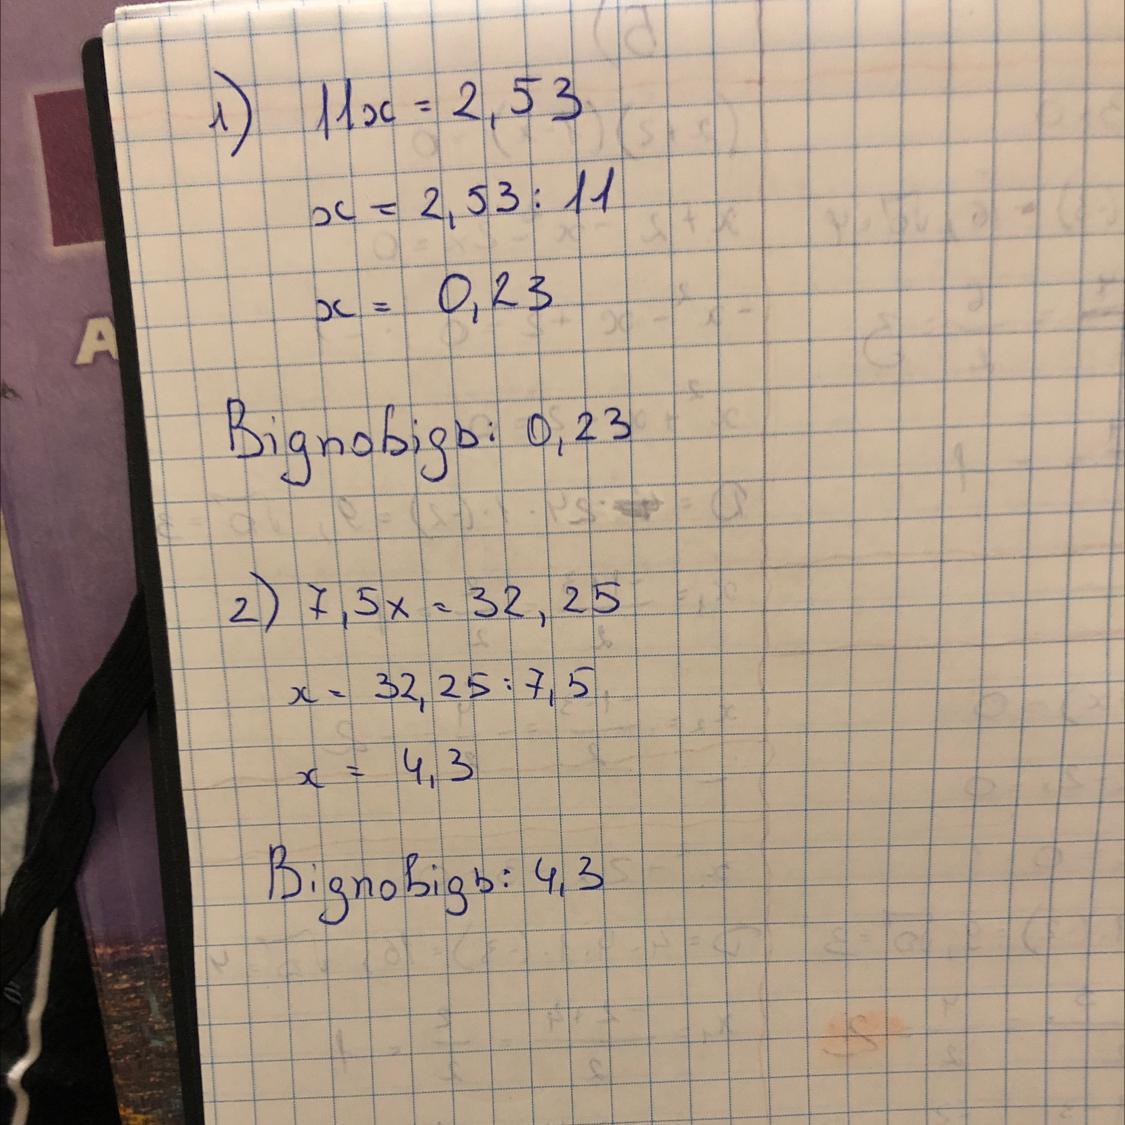 1) 11x = 2,53
x = 2,53 : 11
x = 0,23
Відповідь: 0,23
2) 7,5x = 32,25
x = 32,25 : 7,5
x = 4,3
Відповідь: 4,3
A